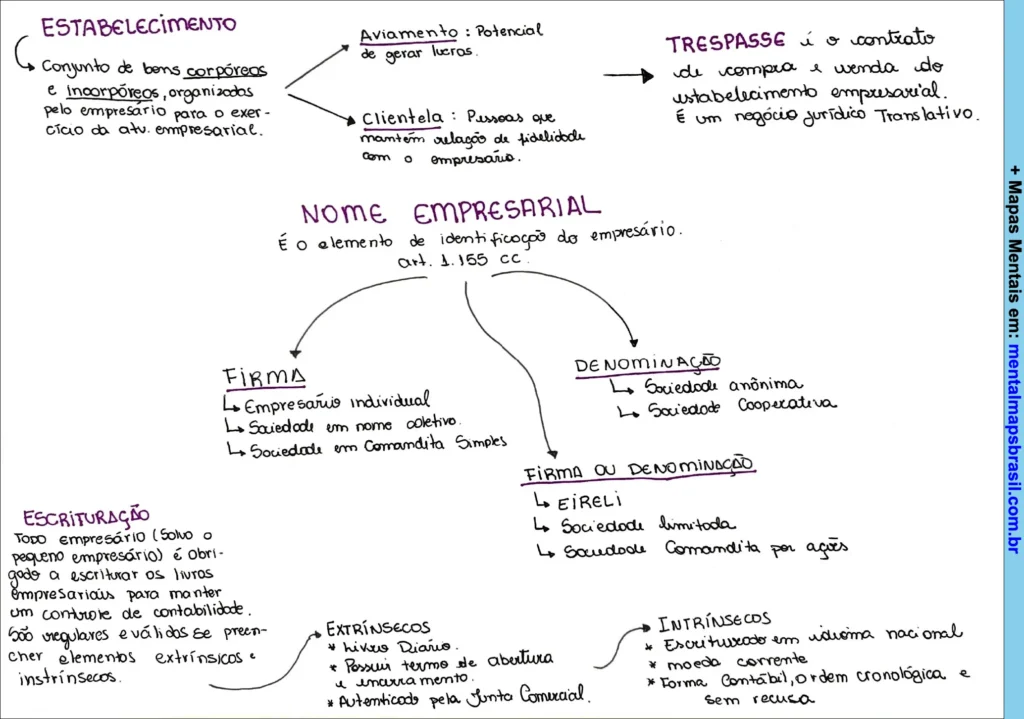 ESTABELECIMENTO
Conjunto de bens corpóreos
e Incorpóreos, organizados
pelo empresário para o exer-
cício da atv. empresarial.
Aviamento : Potencial
de gerar lucros.
Clientela : Pessoas que
mantém relação de fidelidade
com o empresário.
TRESPASSE é o contrato
de compra e venda do
estabelecimento empresarial.
É um negócio jurídico Translativo.
NOME EMPRESARIAL
É o elemento de identificação do empresário.
art. 1.155 CC.
FIRMA
Empresário individual
Sociedade em nome coletivo.
Sociedade em Comandita Simples
DENOMINAÇÃO
Sociedade anônima
Sociedade Cooperativa
FIRMA OU DENOMINAÇÃO
EIRELI
Sociedade limitada
Sociedade Comandita por ações
ESCRITURAÇÃO
TODO empresário (Salvo o
pequeno empresário) é obri-
gado a escriturar os livros
empresariais para manter
um controle de contabilidade.
São regulares e válidos se preen-
cher elementos extrínsicos e
instrínsecos.
EXTRÍNSECOS
* Livro Diário.
* Possui termo de abertura
e encerramento.
* Autenticado pela Junta Comercial.
INTRÍNSECOS
* Escriturado em idioma nacional
* moeda corrente
* Forma Contábil, ordem cronológica e
sem recusa
+ Mapas Mentais em: mentalmapsbrasil.com.br